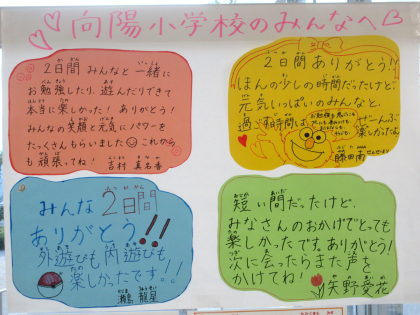 向陽小学校のみんなへ
2日間みんなと一緒に
お勉強したり、遊んだりできて
本当に楽しかった！ありがとう！
みんなの笑顔と元気にパワーを
たっくさんもらいました これから
も頑張ってね！
2日間ありがとう!!
ほんの少しの時間だったけど
元気いっぱいのみんなと、
過ごす時間は、
ぜーんぶ
楽しかったです。
藤田南
みんな2日間
ありがとう!!
外遊びも内遊びも
楽しかったです!!
短い間だったけど、
みなさんのおかげでとても
楽しかったです。ありがとう！
次に会ったらまた声を
かけてね！
矢野愛花